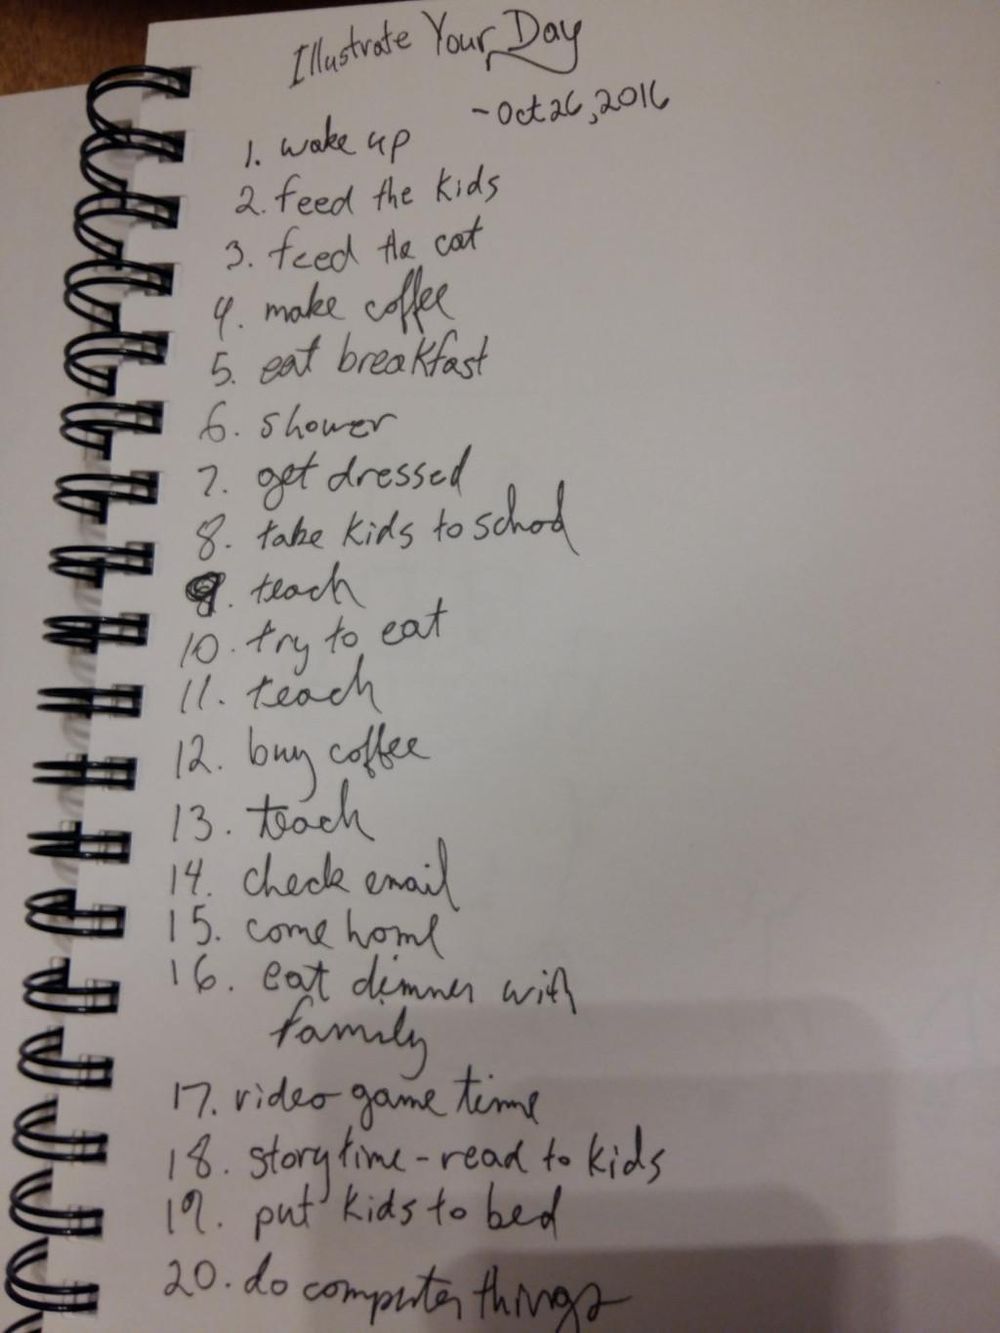 Illustrate Your Day
-Oct 26, 2016
1. wake up
2. feed the kids
3. feed the cat
4. make coffee
5. eat breakfast
6. shower
7. get dressed
8. take kids to school
9. teach
10. try to eat
11. teach
12. buy coffee
13. teach
14. check email
15. come home
16. eat dinner with
family
17. video game time
18. storytime - read to kids
19. put kids to bed
20. do computer things